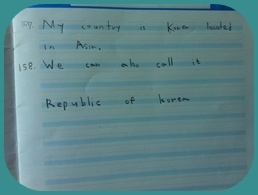 157. My country is Korea located
in Asia.
158. We can also call it
Republic of korea